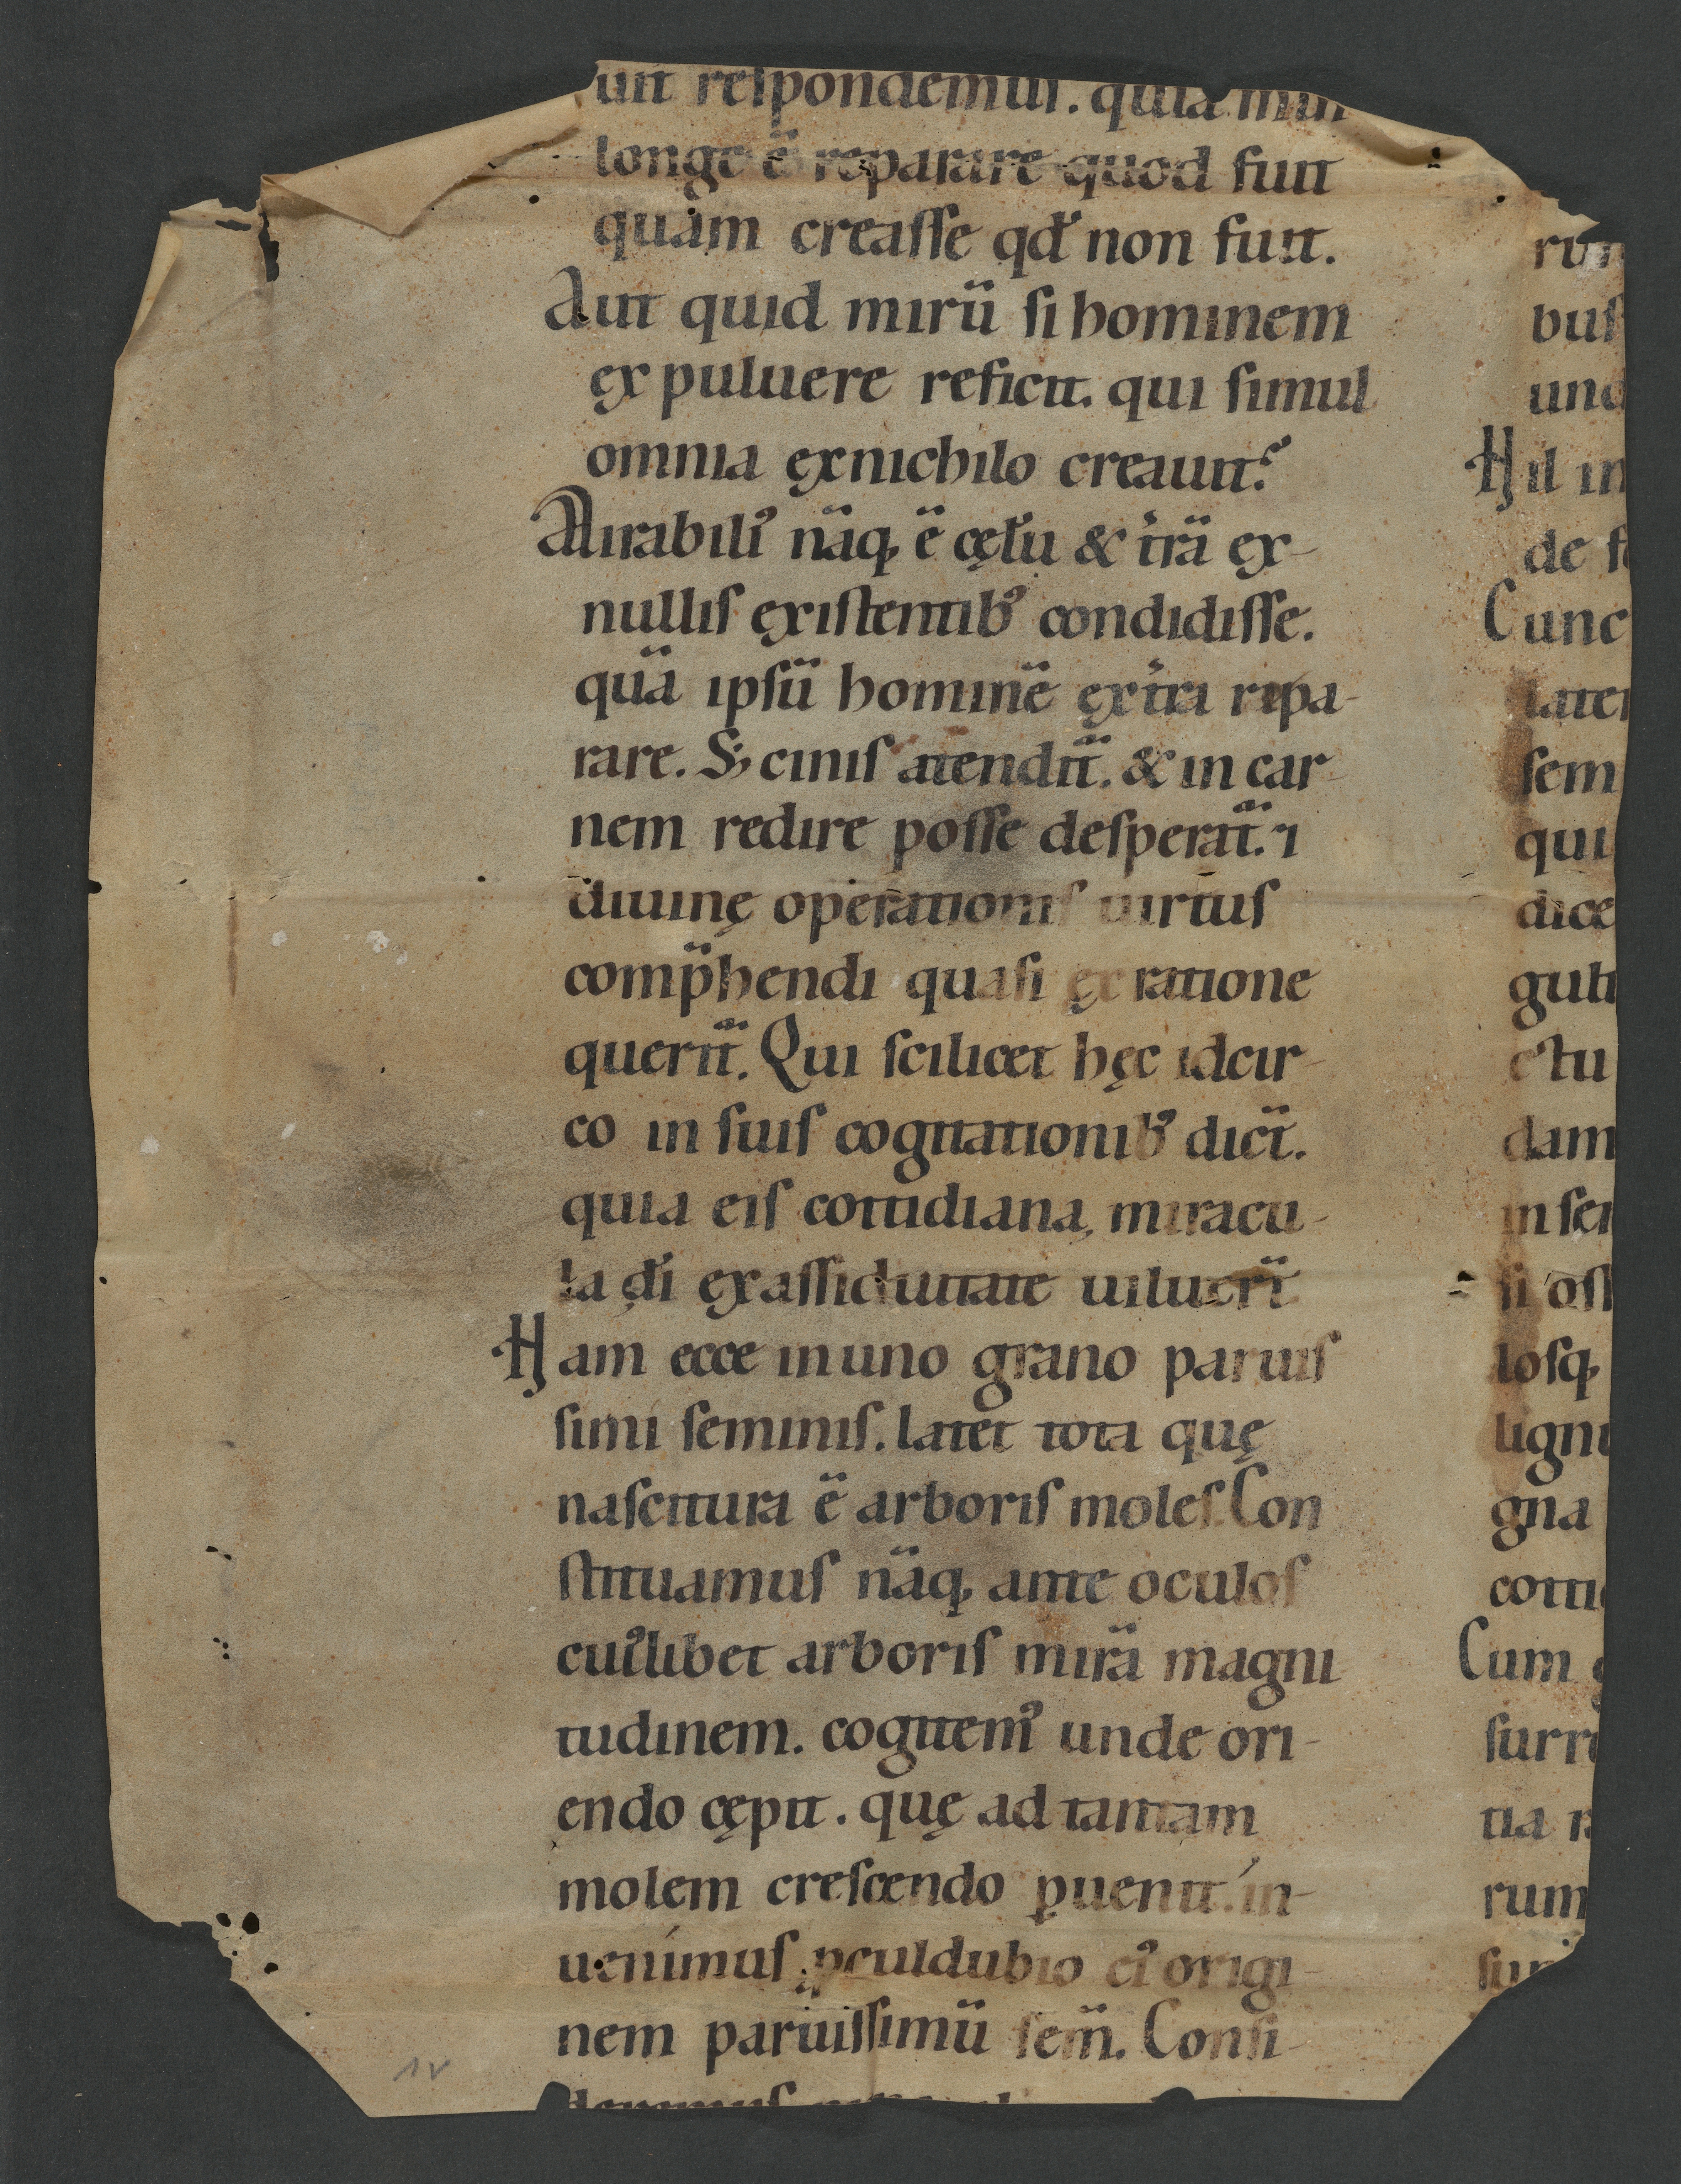 uit respondemus. quia min
longe ē reparare quod fuit
quam creasse qđ non fuit.
Aut quid mirū si hominem
ex puluere reficit. qui simul
omnia ex nichilo creauit?
Mirabiliꝰ nāq; ē cęlū & t̄rā ex-
nullis existentibꝰ condidisse.
quā ipsū hominē ex t̄ra repa-
rare. S; cinis atendit̄. & in car-
nem redire posse desperat̄. ⁊
diuinę operationis uirtus
comp̄hendi quasi ex ratione
querit̄. Qui scilicet hęc idcir-
co in suis cogitationibꝰ dict̄.
quia eis cottidiana miracu-
la dī ex assiduitate uiluerī
Nam ecce in uno grano paruis
simi seminis. latet tota quę
nascitura ē arboris moles. Con
stituamus nāq; ante oculos
cuiꝰlibet arboris mirā magni
tudinem. cogitemꝰ unde ori-
endo cępit. quę ad tantam
molem crescendo ꝑuenit. in-
uenimus ꝓculdubio eiꝰ origi-
nem paruissimū sem̄. Consi-
deremus
rum
bus
und
Nil in
de f
Cunc
later
sem
qui
dice
guli
ctu
dam
in sei
si oss
losq;
lign
gna
cotti
Cum
surre
tia r
rum
sur
1v